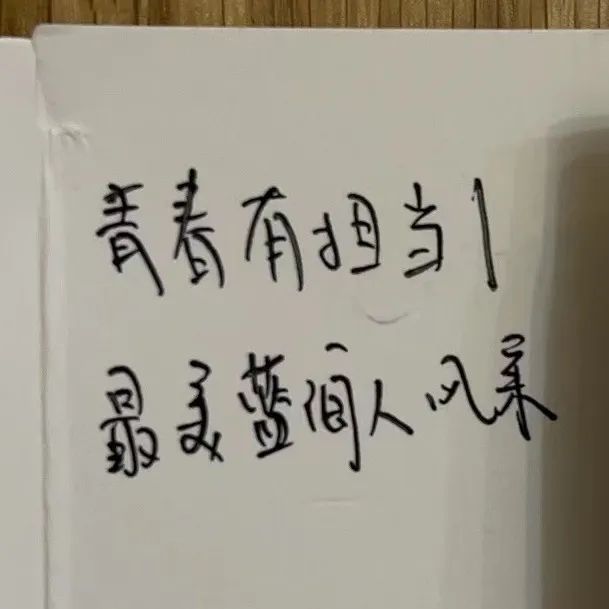 青春有担当!
最美蓝间人风采